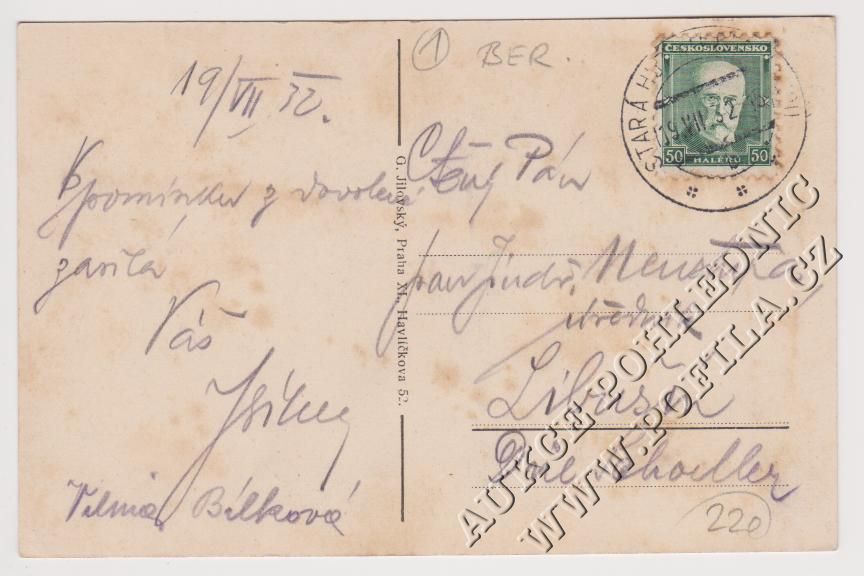 19/VII 32.
Vpomínku z dovolené
zasílá
Váš
Vilma Bílková
G. Jílovský, Praha XI., Havlíčkova 52.
1 BER.
ČESKOSLOVENSKO
50 HALÉŘŮ 50
STARÁ HU
19.VII.32
Ctěný Pán
pan Jindř.
úředník
Libušín
Důl Schoeller
220
AUKCE POHLEDNIC
WWW.POFILA.CZ